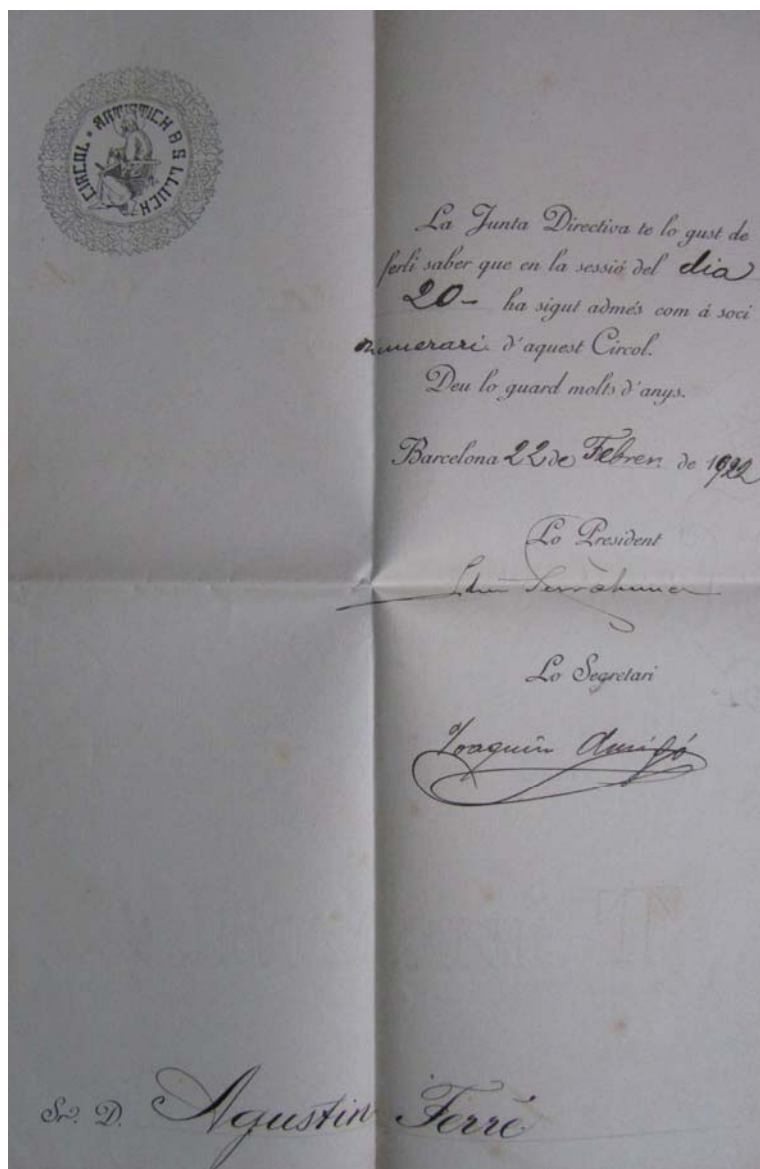 CIRCOL ARTISTICH D S LLUCH
La Junta Directiva te lo gust de
ferli saber que en la sessió del dia
20- ha sigut admés com á soci
numerari d'aquest Circol.
Deu lo guard molts d'anys.
Barcelona 22 de Febrer de 1922
Lo President
Lo Segretari
Joaquin
Sr. D. Agustin Ferré